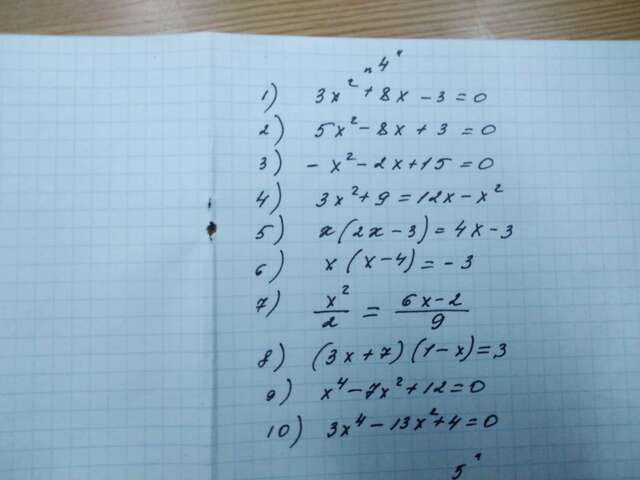 "4"
1) 3x² + 8x - 3 = 0
2) 5x² - 8x + 3 = 0
3) - x² - 2x + 15 = 0
4) 3x² + 9 = 12x - x²
5) x(2x - 3) = 4x - 3
6) x(x - 4) = - 3
7) x²/2 = (6x - 2)/9
8) (3x + 7)(1 - x) = 3
9) x⁴ - 7x² + 12 = 0
10) 3x⁴ - 13x² + 4 = 0
5"